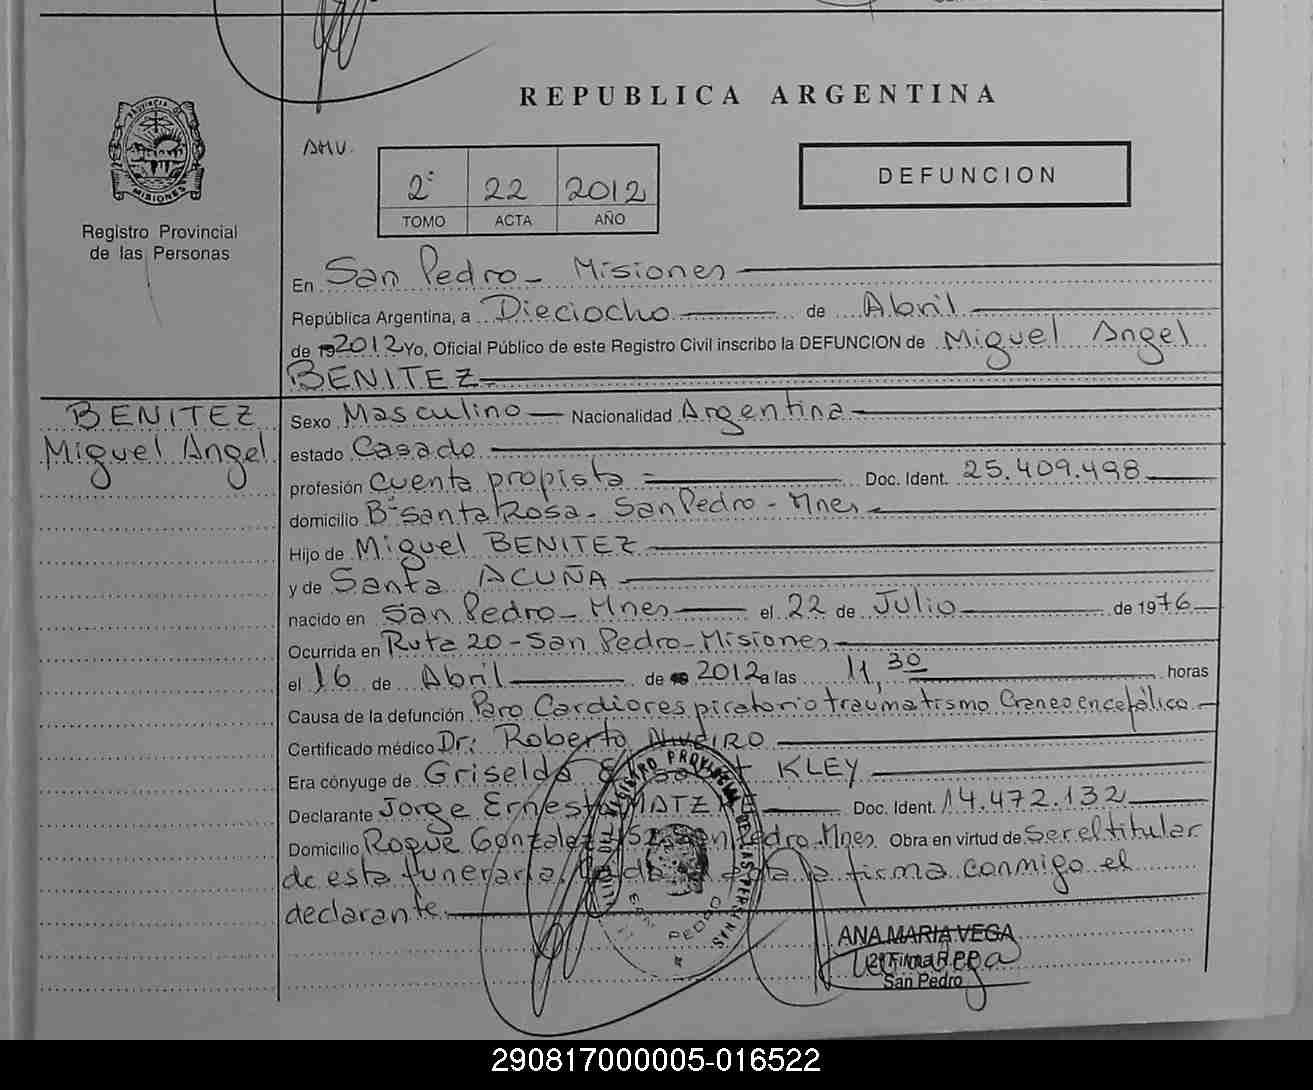 PROVINCIA DE
MISIONES
Registro Provincial
de las Personas
REPUBLICA ARGENTINA
AMV.
2º 22 2012
TOMO ACTA AÑO
DEFUNCION
En San Pedro - Misiones
República Argentina, a Dieciocho de Abril
de 2012 Yo, Oficial Público de este Registro Civil inscribo la DEFUNCION de Miguel Angel
BENITEZ
BENITEZ
Miguel Angel
Sexo Masculino Nacionalidad Argentina
estado Casado
profesión cuenta propista Doc. Ident. 25.409.498
domicilio Bº Santa Rosa - San Pedro - Mnes
Hijo de Miguel BENITEZ
y de Santa ACUÑA
nacido en San Pedro - Mnes el 22 de Julio de 1976
Ocurrida en Ruta 20 - San Pedro - Misiones
el 16 de Abril de 2012 a las 11,30 horas
Causa de la defunción Paro Cardiorespiratorio traumatismo Craneoencefálico
Certificado médico Dr: Roberto NIVEIRO
Era cónyuge de Griselda KLEY
Declarante Jorge Ernesto Doc. Ident. 14.472.132
Domicilio Roque Gonzalez San Pedro - Mnes Obra en virtud de Ser el titular
de esta funeraria. la firma conmigo el
declarante.
REGISTRO PROVINCIAL DE LAS PERSONAS
SAN PEDRO
ANA MARIA VEGA
2º Firma R.P.P.
San Pedro
290817000005-016522